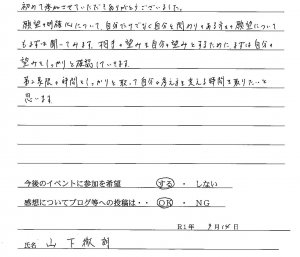 初めて参加させていただきありがとうございました。
願望の明確化について、自分だけでなく自分と関わりのある方々の願望について
もまずは聞いてみます。相手の望みを自分の望みとするために、まずは自分の
望みをしっかりと確認していきます。
第2象限の時間をしっかりと取って自分の考えを支える時間を取りたいと
思います。
今後のイベントに参加を希望 する ・ しない
感想についてブログ等への投稿は・・ OK ・ NG
R1年 9月 日
氏名 山下